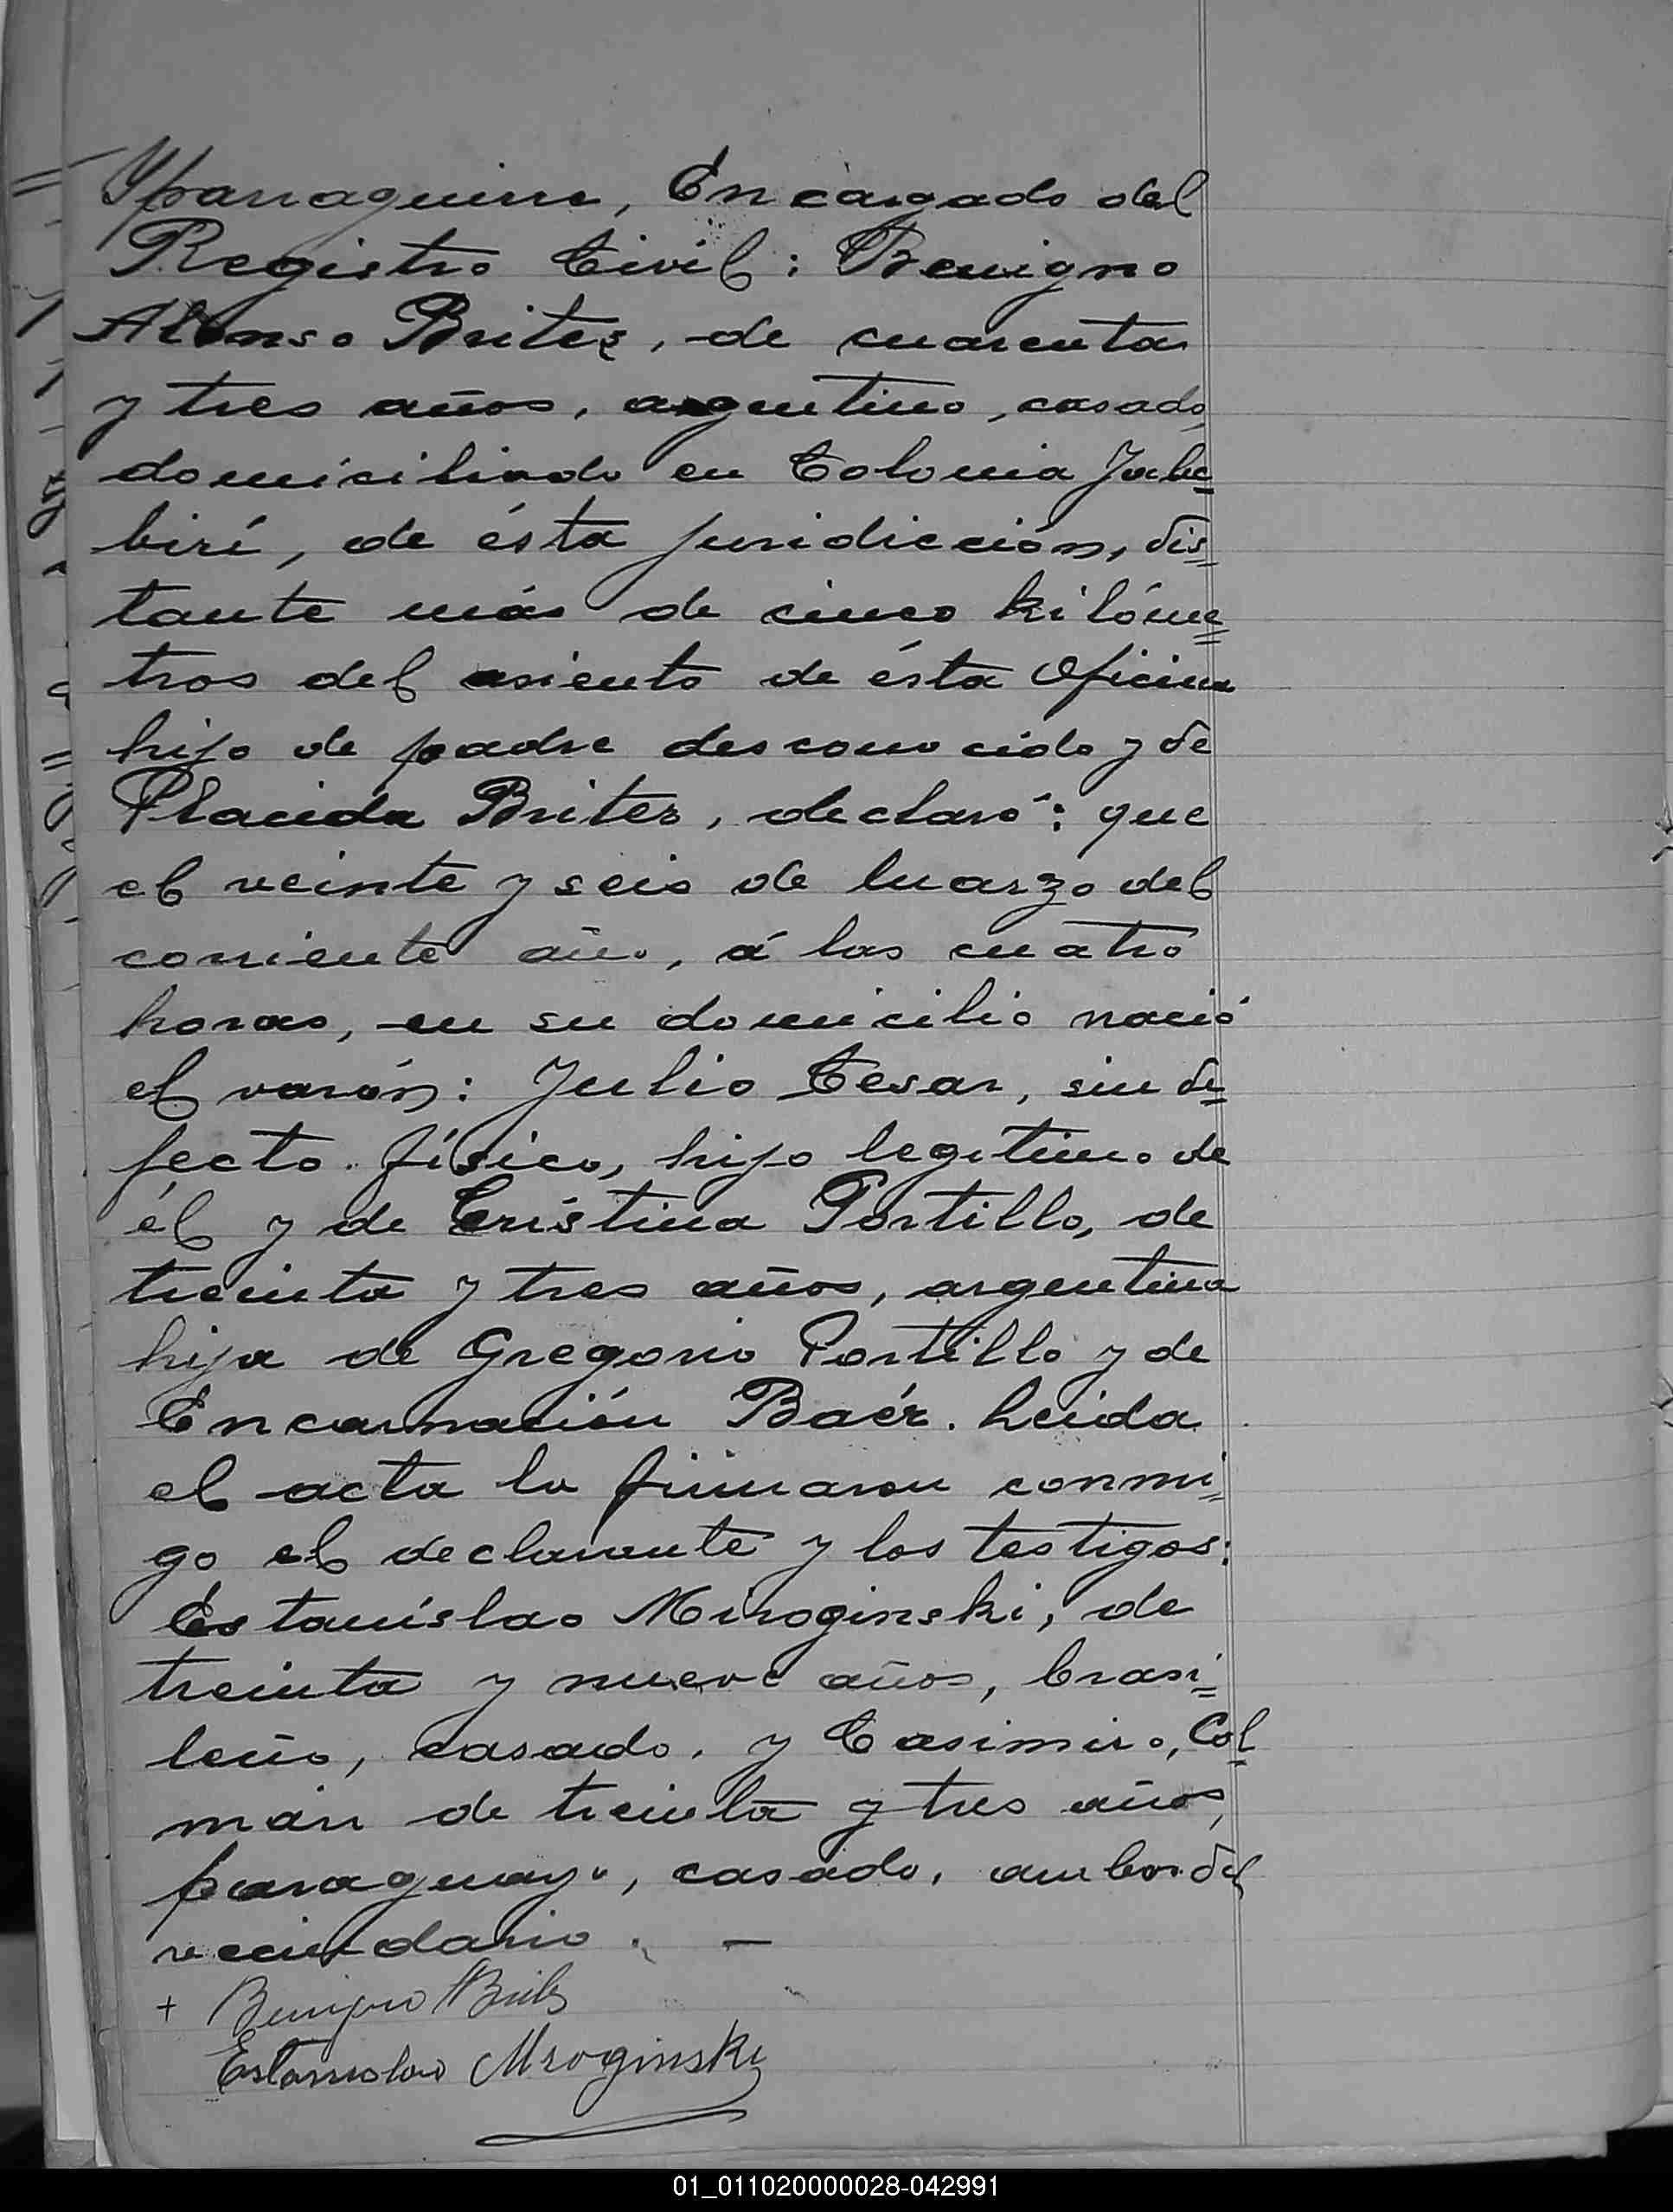 Yparraguirre, Encargado del
Registro Civil: Benigno
Alonso Britez, de cuarenta
y tres años, argentino, casado,
domiciliado en Colonia Yabe=
birí, de ésta juridicción, dis=
tante más de cinco kilóme=
tros del asiento de ésta Oficina
hijo de padre desconocido y de
Placida Britez, declaró: que
el veinte y seis de Marzo del
corriente año, á las cuatro
horas, en su domicilio nació
el varón: Julio Cesar, sin de=
fecto físico, hijo legitimo de
él y de Cristina Portillo, de
treinta y tres años, argentina
hija de Gregorio Portillo y de
Encarnación Baéz. Leida
el acta la firmaron conmi=
go el declarante y los testigos:
Estanislao Miroginski, de
treinta y nueve años, brasi=
leño, casado, y Casimiro, Col=
mán de treinta y tres años,
paraguayo, casado, ambos del
vecindario. —
+ Benigno Britez
Estanislao Mroginski
01_011020000028-042991